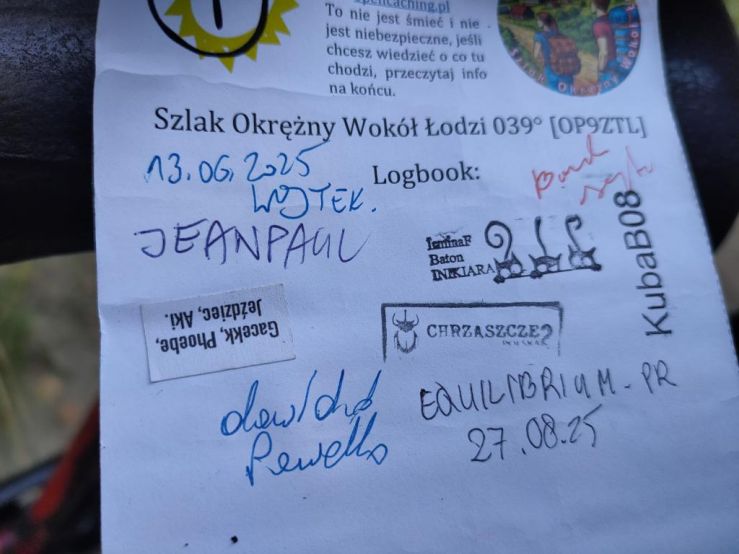 opencaching.pl
To nie jest śmieć i nie
jest niebezpieczne, jeśli
chcesz wiedzieć o co tu
chodzi, przeczytaj info
na końcu.
Szlak Okrężny Wokół Łodzi 039° [OP9ZTL]
13.06.2025
WOJTEK.
Logbook:
JEANPAUL
IgninaF
Baton
INIKIARA
KubaB08
Gacekk, Phoebe,
Jeździec, Aki.
CHRZĄSZCZE2
EQUILIBRIUM-PR
27.08.25